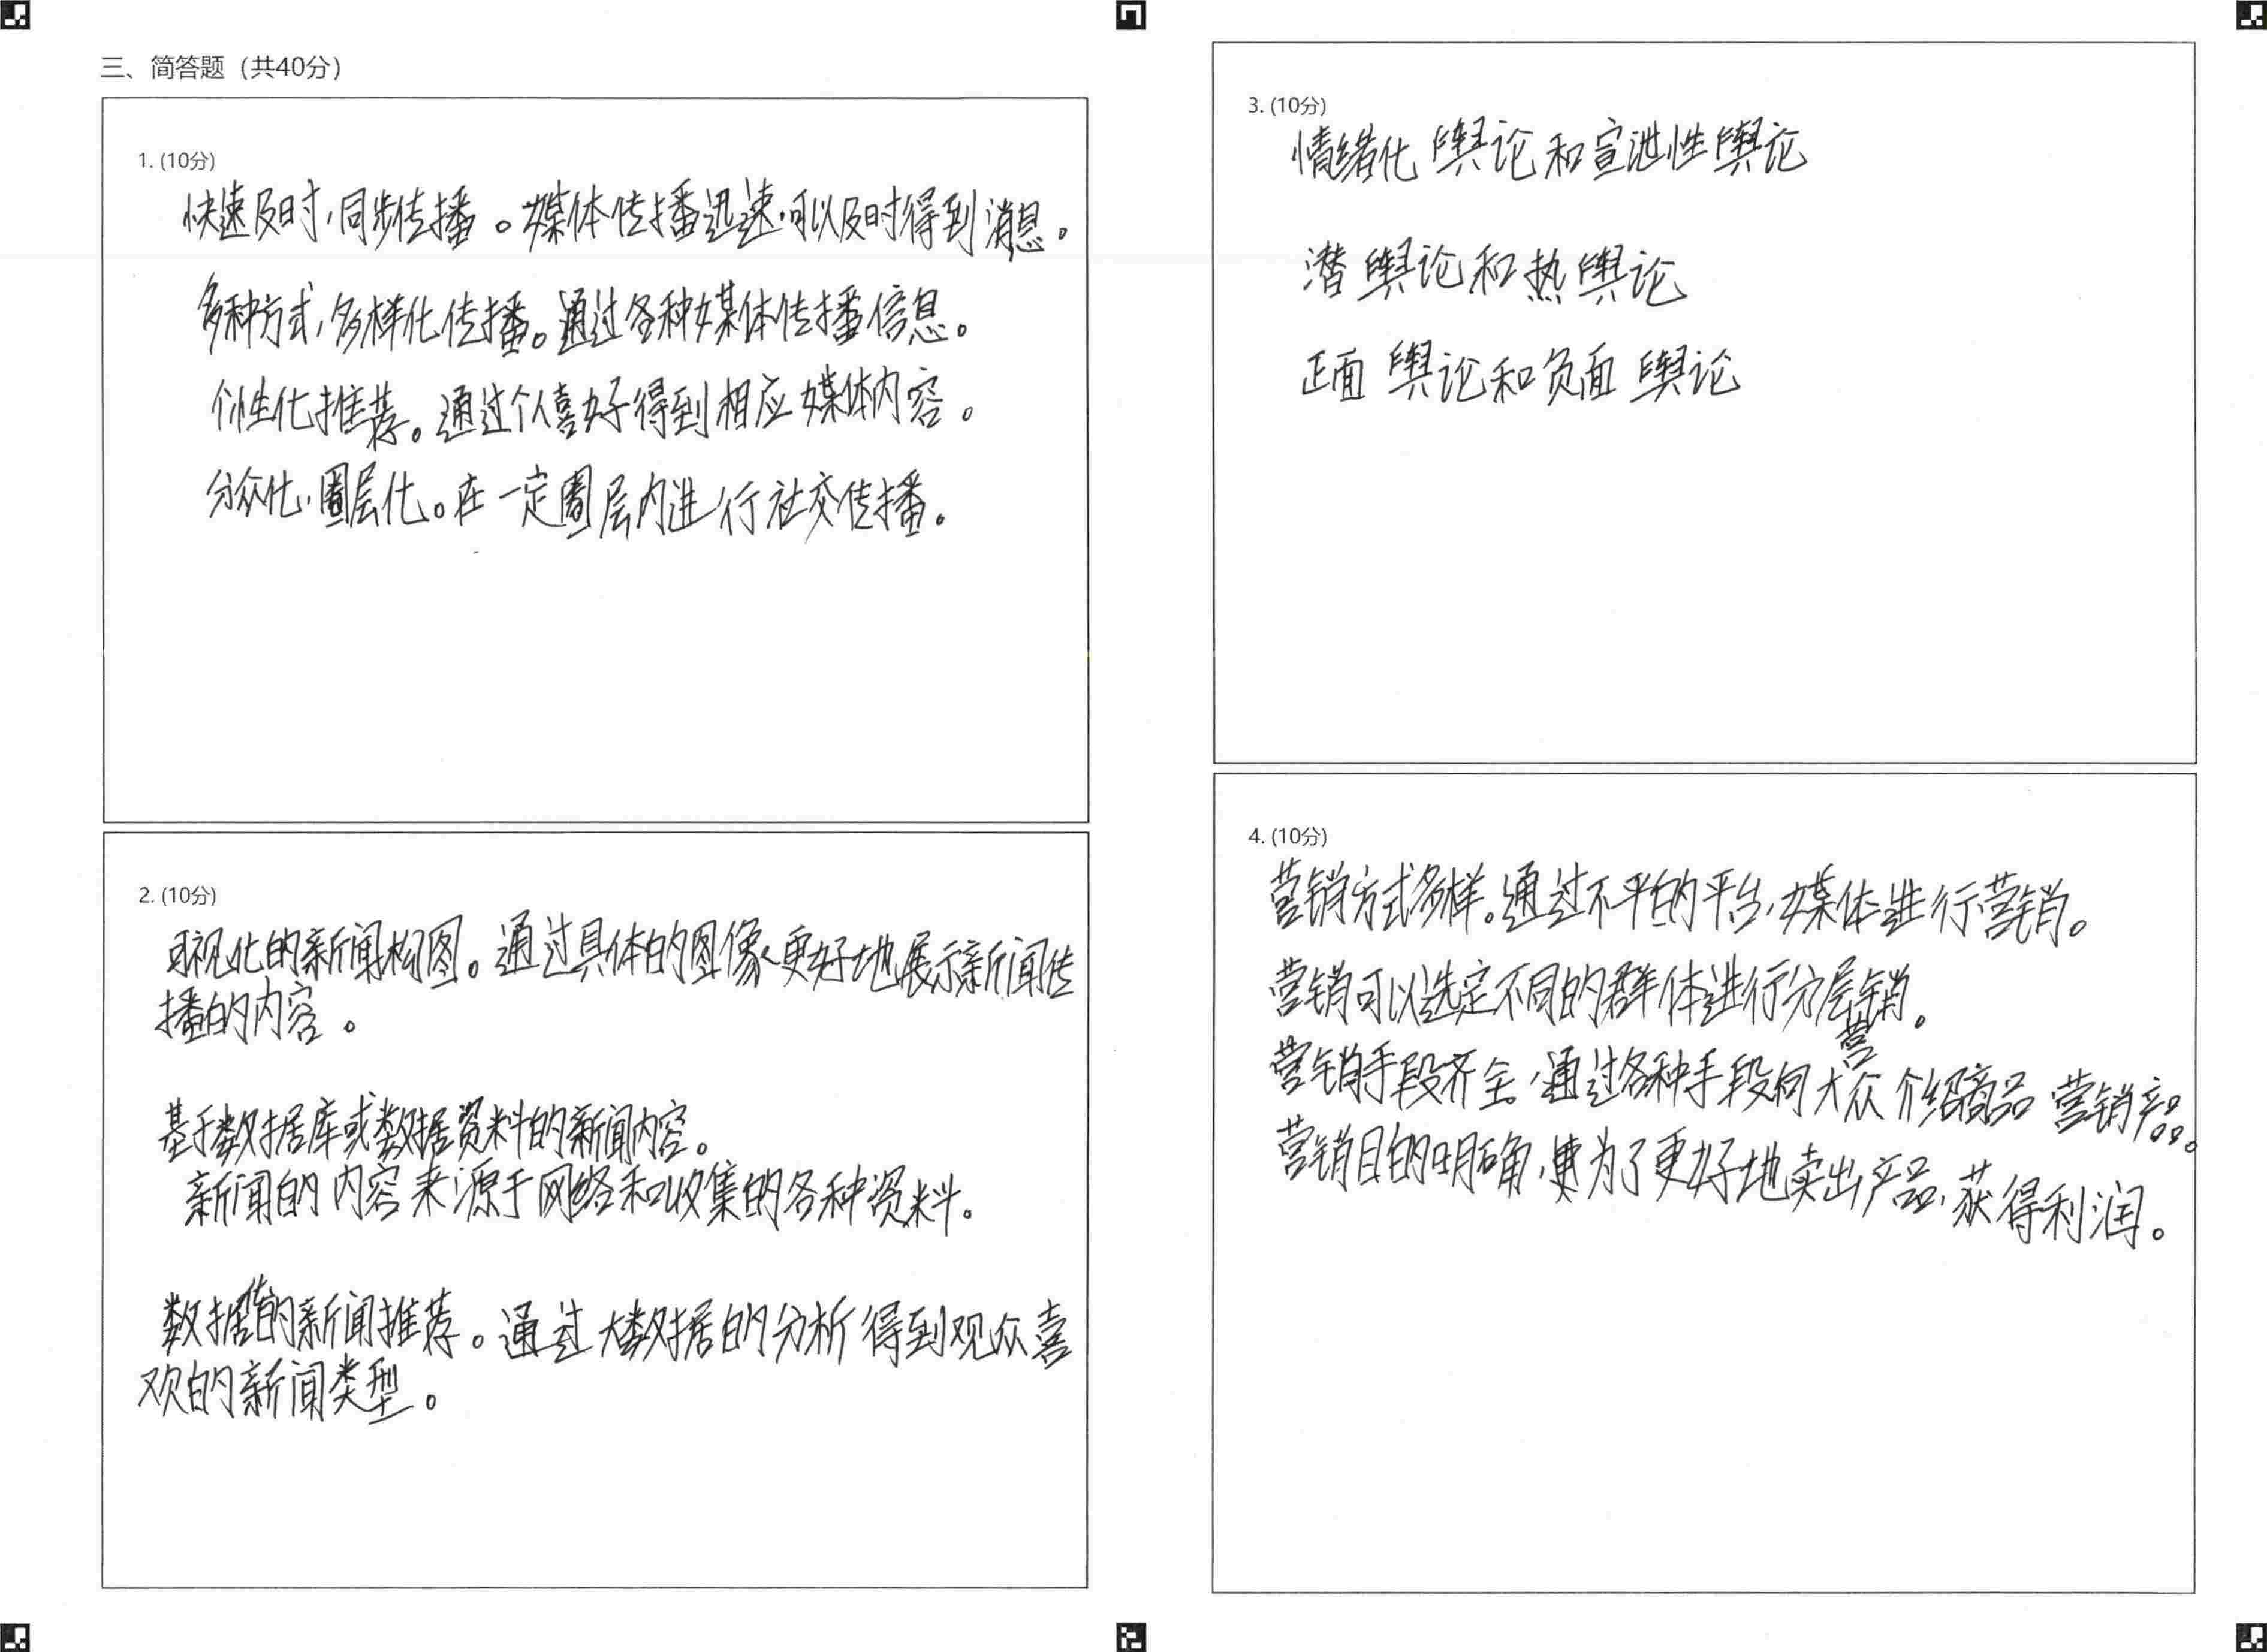 三、简答题（共40分）
1. (10分)
快速及时，同步传播。媒体传播迅速，可以及时得到消息。
多种方式，多样化传播。通过各种媒体传播信息。
个性化推荐。通过个人喜好得到相应媒体内容。
分众化，圈层化。在一定圈层内进行社交传播。
2. (10分)
可视化的新闻构图。通过具体的图像更好地展示新闻传
播的内容。
基于数据库或数据资料的新闻内容。
新闻的内容来源于网络和收集的各种资料。
数据化的新闻推荐。通过大数据的分析得到观众喜
欢的新闻类型。
3. (10分)
情绪化舆论和宣泄性舆论
潜舆论和热舆论
正面舆论和负面舆论
4. (10分)
营销方式多样。通过不平的平台，媒体进行营销。
营销可以选定不同的群体进行分层营销。
营销手段齐全。通过各种手段向大众介绍商品 营销产品。
营销目的明确，为了更好地卖出产品，获得利润。